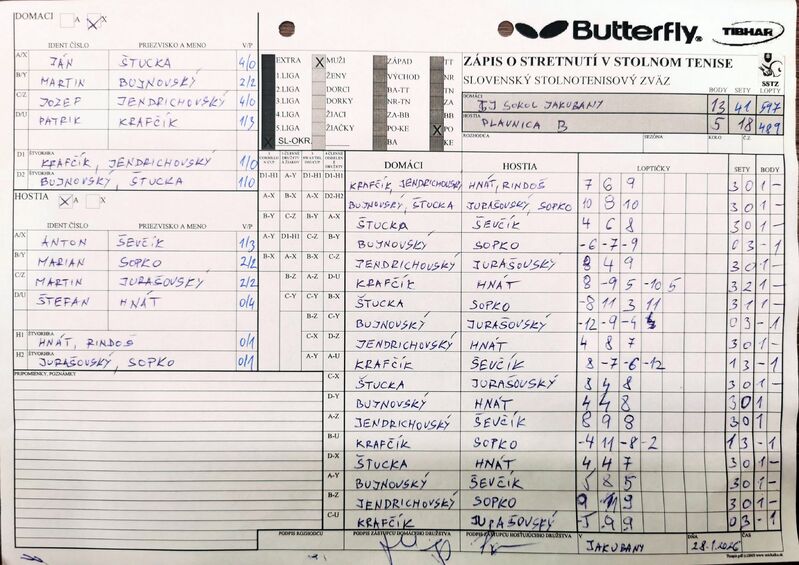 DOMÁCI A X
Butterfly TIBHAR
IDENT ČÍSLO PRIEZVISKO A MENO V/P
A/X JÁN ŠTUCKA 4/0
B/Y MARTIN BUJNOVSKÝ 2/2
C/Z JOZEF JENDRICHOVSKÝ 4/0
D/U PATRIK KRAFČÍK 1/3
D1 ŠTVORHRA KRAFČÍK, JENDRICHOVSKÝ 1/0
D2 ŠTVORHRA BUJNOVSKÝ, ŠTUCKA 1/0
HOSTIA X X
IDENT ČÍSLO PRIEZVISKO A MENO V/P
A/X ANTON ŠEVČÍK 1/3
B/Y MARIAN SOPKO 2/2
C/Z MARTIN JURAŠOVSKÝ 2/2
D/U ŠTEFAN HNÁT 0/4
H1 ŠTVORHRA HNÁT, RINDOŠ 0/1
H2 ŠTVORHRA JURAŠOVSKÝ, SOPKO 0/1
PRIPOMIENKY, POZNÁMKY
EXTRA X MUŽI ZÁPAD TT
1 LIGA ŽENY VÝCHOD NR
2 LIGA DORCI BA-TT TN
3 LIGA DORKY NR-TN ZA
4 LIGA ŽIACI ZA-BB BB
5 LIGA ŽIAČKY PO-KE X PO
X SL-OKR. BA KE
ZÁPIS O STRETNUTÍ V STOLNOM TENISE
SLOVENSKÝ STOLNOTENISOVÝ ZVÄZ
SSTZ
BODY SETY LOPTY
DOMÁCI TJ SOKOL JAKUBANY 13 41 597
HOSTIA PLAVNICA B 5 18 489
ROZHODCA SEZÓNA KOLO Č.
DOMÁCI HOSTIA LOPTIČKY SETY BODY
D1-H1 A-Y D1-H1 D1-H1 KRAFČÍK, JENDRICHOVSKÝ HNÁT, RINDOŠ 7 6 9 3 0 1 -
A-X B-X A-X D2-H2 BUJNOVSKÝ, ŠTUCKA JURAŠOVSKÝ, SOPKO 10 8 10 3 0 1 -
B-Y C-Z B-Y A-X ŠTUCKA ŠEVČÍK 4 6 8 3 0 1 -
A-Y D1-H1 C-Z B-Y BUJNOVSKÝ SOPKO -6 -7 -9 0 3 - 1
B-X A-X B-X C-Z JENDRICHOVSKÝ JURAŠOVSKÝ 8 4 9 3 0 1 -
B-Z A-Z D-U KRAFČÍK HNÁT 8 -9 5 -10 5 3 2 1 -
C-Y C-Y B-X ŠTUCKA SOPKO -8 11 3 11 3 1 1 -
B-Z C-Y BUJNOVSKÝ JURAŠOVSKÝ -12 -9 -4 0 3 - 1
C-X D-Z JENDRICHOVSKÝ HNÁT 4 8 7 3 0 1 -
A-Y A-U KRAFČÍK ŠEVČÍK 8 -7 -6 -12 1 3 - 1
C-X ŠTUCKA JURAŠOVSKÝ 8 4 8 3 0 1 -
D-Y BUJNOVSKÝ HNÁT 4 4 8 3 0 1
A-Z JENDRICHOVSKÝ ŠEVČÍK 8 9 8 3 0 1 -
B-U KRAFČÍK SOPKO -4 11 -8 -2 1 3 - 1
D-X ŠTUCKA HNÁT 4 4 7 3 0 1 -
A-Y BUJNOVSKÝ ŠEVČÍK 5 8 5 3 0 1 -
B-Z JENDRICHOVSKÝ SOPKO 9 11 9 3 0 1 -
C-U KRAFČÍK JURAŠOVSKÝ -5 9 9 0 3 - 1
PODPIS ROZHODCU PODPIS ZÁSTUPCU DOMÁCEHO DRUŽSTVA PODPIS ZÁSTUPCU HOSŤUJÚCEHO DRUŽSTVA V JAKUBANY DŇA 28.1.2026 ČAS